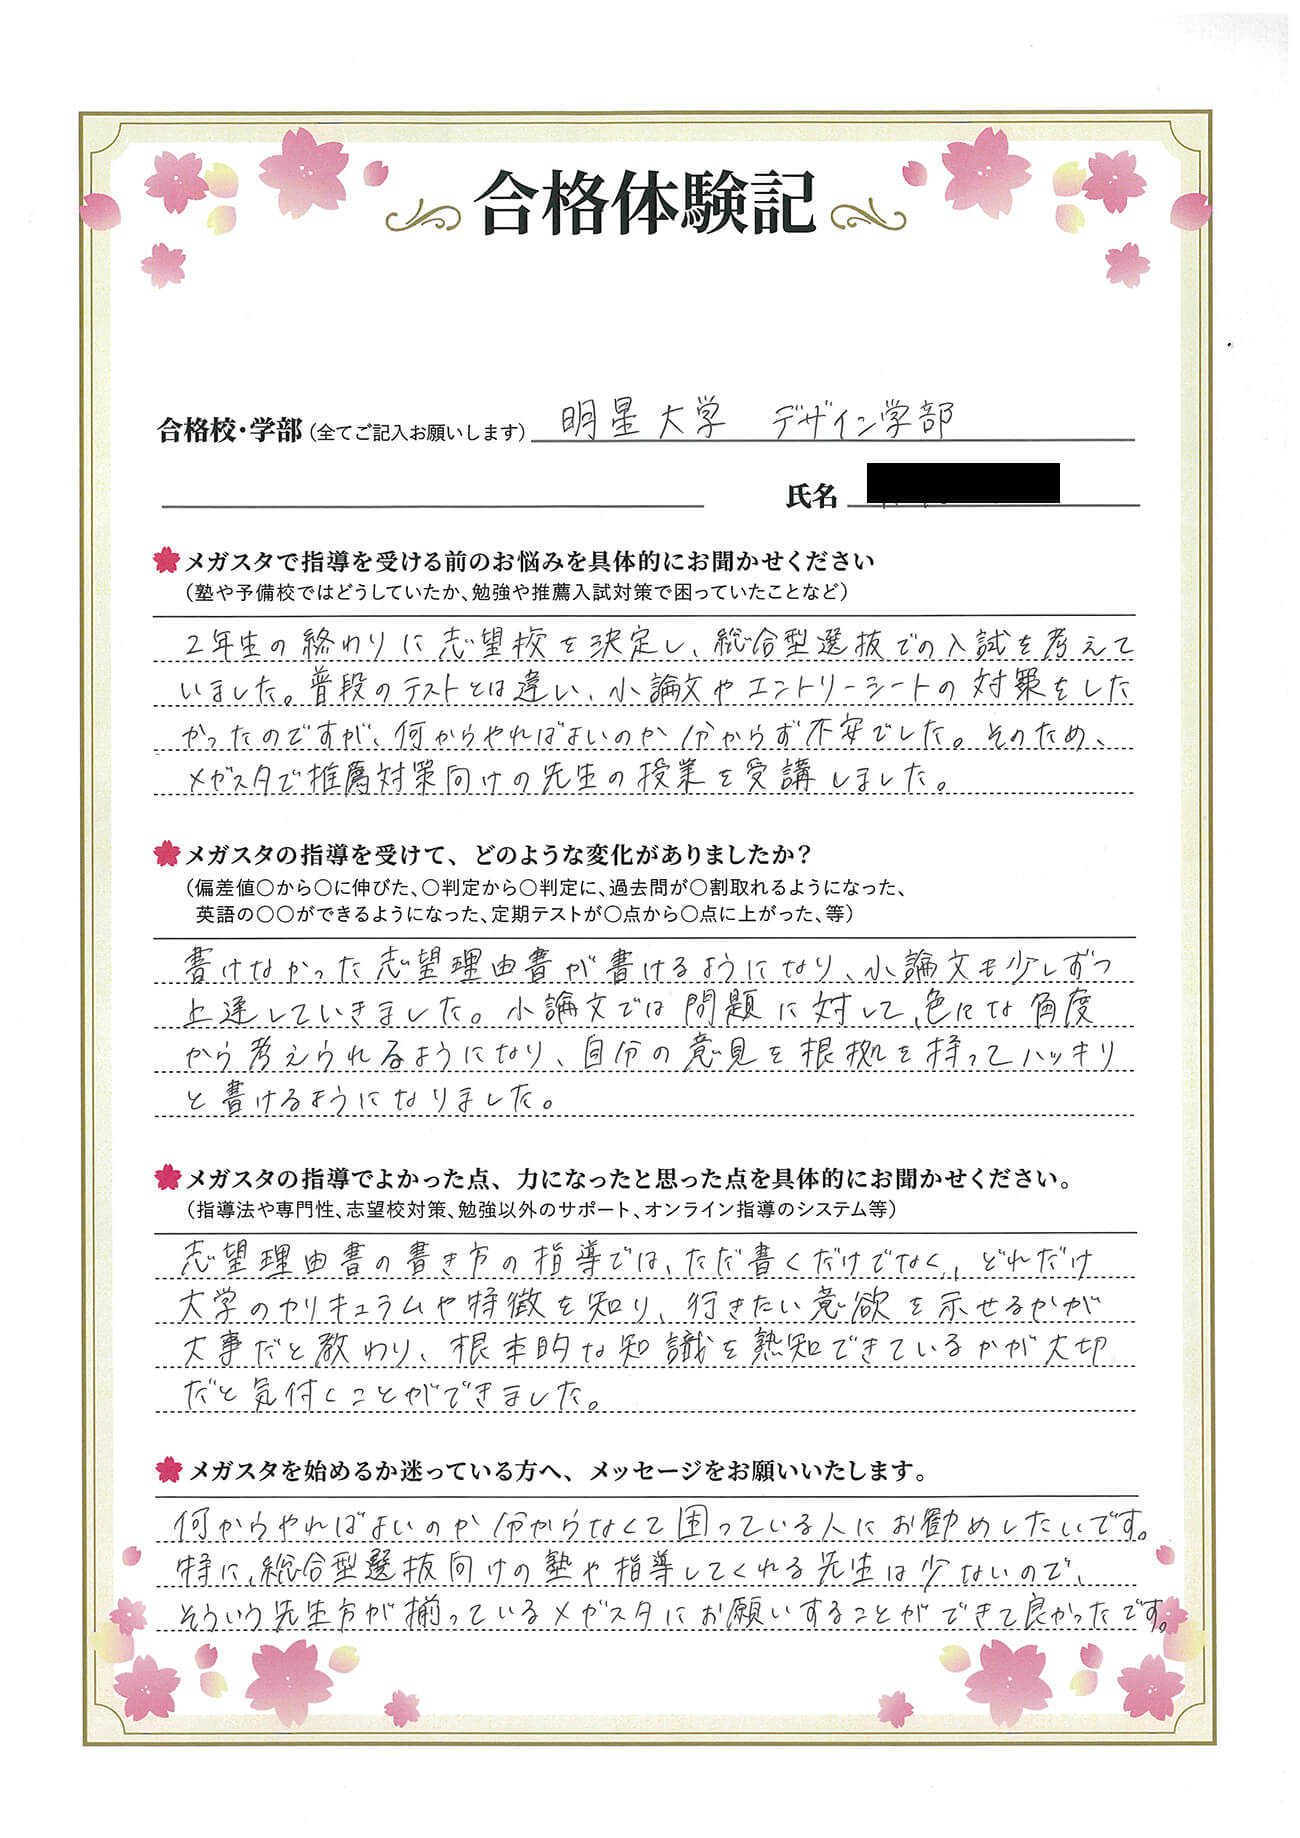 合格体験記
合格校・学部(全てご記入お願いします) 明星大学 デザイン学部
氏名
メガスタで指導を受ける前のお悩みを具体的にお聞かせください
(塾や予備校ではどうしていたか、勉強や推薦入試対策で困っていたことなど)
2年生の終わりに志望校を決定し、総合型選抜での入試を考えて
いました。普段のテストとは違い、小論文やエントリーシートの対策をした
かったのですが、何からやればよいのか分からず不安でした。そのため、
メガスタで推薦対策向けの先生の授業を受講しました。
メガスタの指導を受けて、どのような変化がありましたか?
(偏差値〇から〇に伸びた、〇判定から〇判定に、過去問が〇割取れるようになった、
英語の〇〇ができるようになった、定期テストが〇点から〇点に上がった、等)
書けなかった志望理由書が書けるようになり、小論文も少しずつ
上達していきました。小論文では問題に対して、色々な角度
から考えられるようになり、自分の意見を根拠を持ってハッキリ
と書けるようになりました。
メガスタの指導でよかった点、力になったと思った点を具体的にお聞かせください。
(指導法や専門性、志望校対策、勉強以外のサポート、オンライン指導のシステム等)
志望理由書の書き方の指導では、ただ書くだけでなく、どれだけ
大学のカリキュラムや特徴を知り、行きたい意欲を示せるかが
大事だと教わり、根本的な知識を熟知できているかが大切
だと気付くことができました。
メガスタを始めるか迷っている方へ、メッセージをお願いいたします。
何からやればよいのか分からなくて困っている人にお勧めしたいです。
特に、総合型選抜向けの塾や指導してくれる先生は少ないので、
そういう先生方が揃っているメガスタにお願いすることができて良かったです。